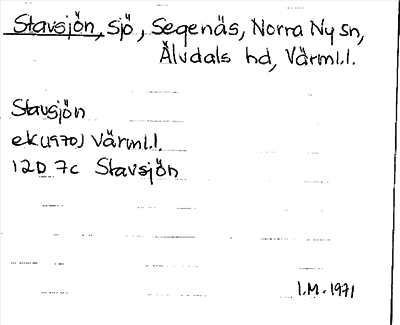 Stavsjön, sjö, Segenäs, Norra Ny sn,
Älvdals hd, Värml.l.
Stavsjön
ek(1970) Värml.l.
12D 7c Stavsjön
I.M. 1971